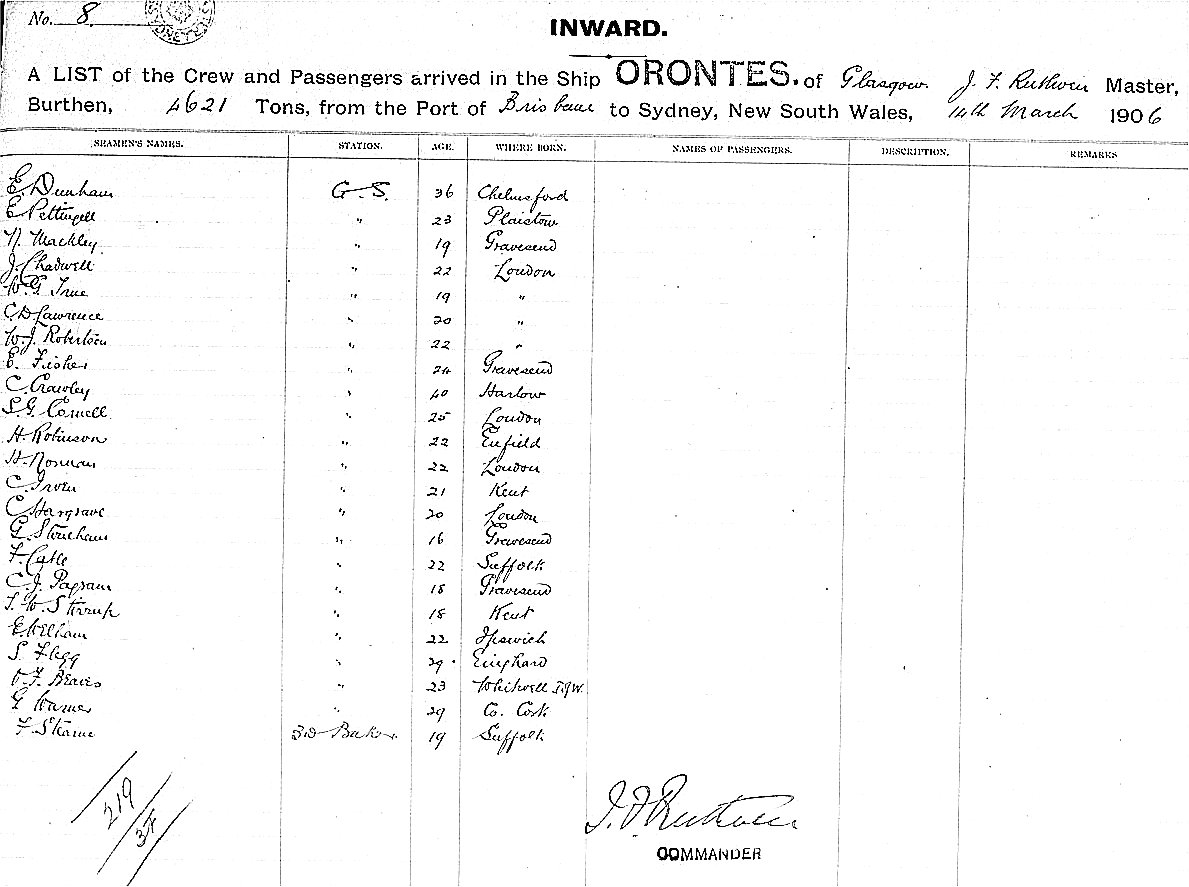 No. 8.
INWARD.
A LIST of the Crew and Passengers arrived in the Ship ORONTES. of Glasgow. J. F. Ruthven Master,
Burthen, 4621 Tons, from the Port of Brisbane to Sydney, New South Wales, 14th March 1906
SEAMEN'S NAMES. STATION. AGE. WHERE BORN. NAMES OF PASSENGERS. DESCRIPTION. REMARKS
E. Dunham G.S. 36 Chelmsford
E. Pettingell " 23 Plaistow
N. Mackley " 19 Gravesend
J. Chadwell " 22 London
W. G. True " 19 "
C. D. Lawrence " 20 "
W. J. Robertson " 22 "
E. Fisher " 24 Gravesend
C. Crawley " 40 Harlow
S. G. Cornell " 25 London
H. Robinson " 22 Enfield
H. Norman " 22 London
C. Irvin " 21 Kent
C. Hargrave " 20 London
G. " 16 Gravesend
F. " 22 Suffolk
C. J. Pagram " 18 Gravesend
W. Stirrup " 18 Kent
E. Welham " 22 Ipswich
S. Flegg " 29
F. Beaves " 23 Whitwell I.O.W.
G. " 29 Co. Cork
F. 3rd Baker 19 Suffolk
219
37
J. F. Ruthven
COMMANDER